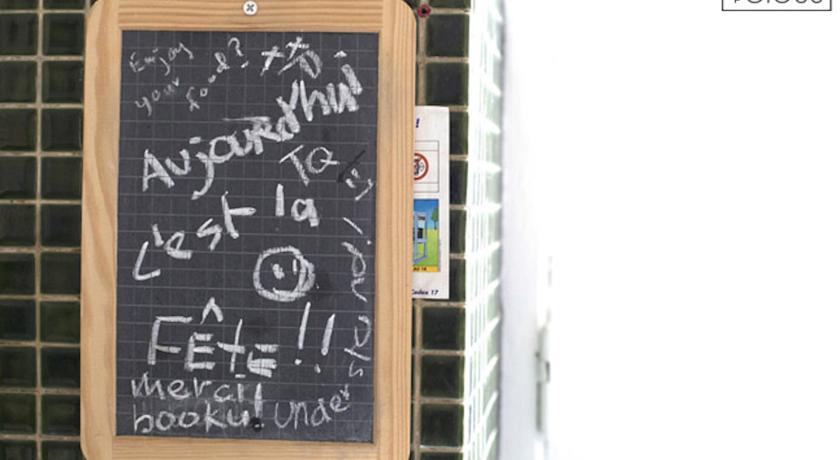 Enjoy
your food?
XXD
Aujourdhui
TQ
c'est la
FÊtE !!
merci
booku! under
Codex 17